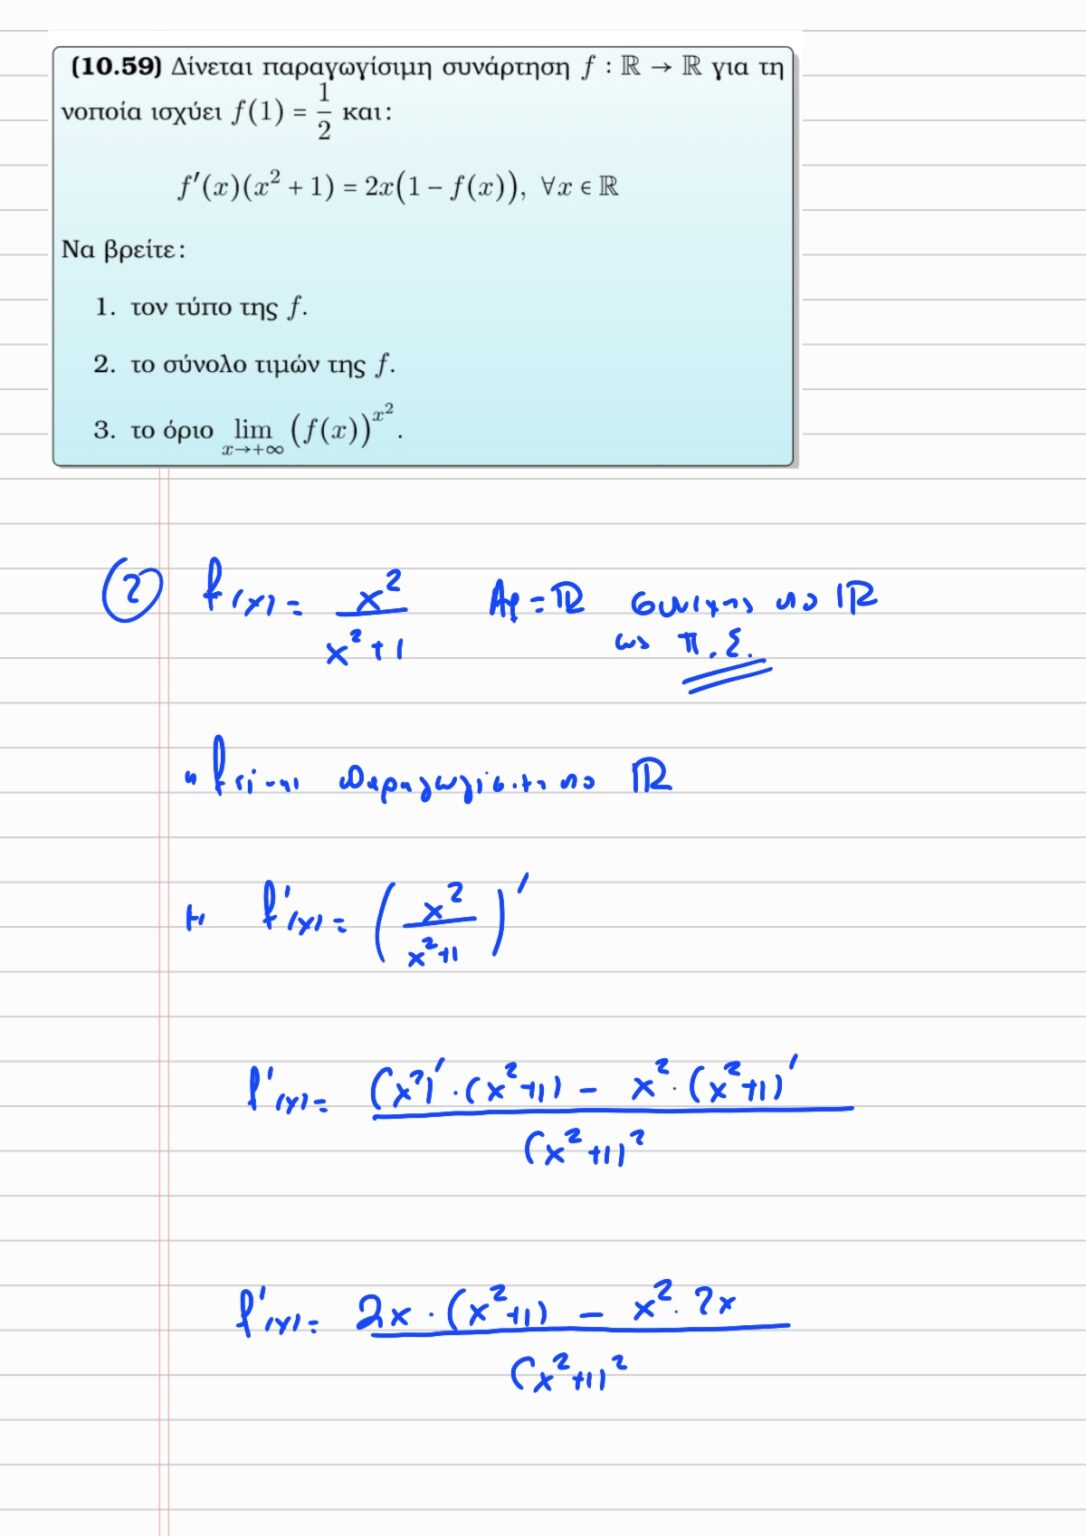 (10.59) Δίνεται παραγωγίσιμη συνάρτηση f : ℝ → ℝ για τη
νοποία ισχύει f(1) = 1/2 και:
f′(x)(x² + 1) = 2x(1 − f(x)), ∀x ∈ ℝ
Να βρείτε:
1. τον τύπο της f.
2. το σύνολο τιμών της f.
3. το όριο lim x→+∞ (f(x))^x².
② f(x) = x²/(x²+1) Af = ℝ συνεχής στο ℝ
ως π.Σ.
η f είναι παραγωγίσιμη στο ℝ
με f'(x) = (x²/(x²+1))'
f'(x) = ((x²)'·(x²+1) − x²·(x²+1)')/(x²+1)²
f'(x) = (2x·(x²+1) − x²·2x)/(x²+1)²